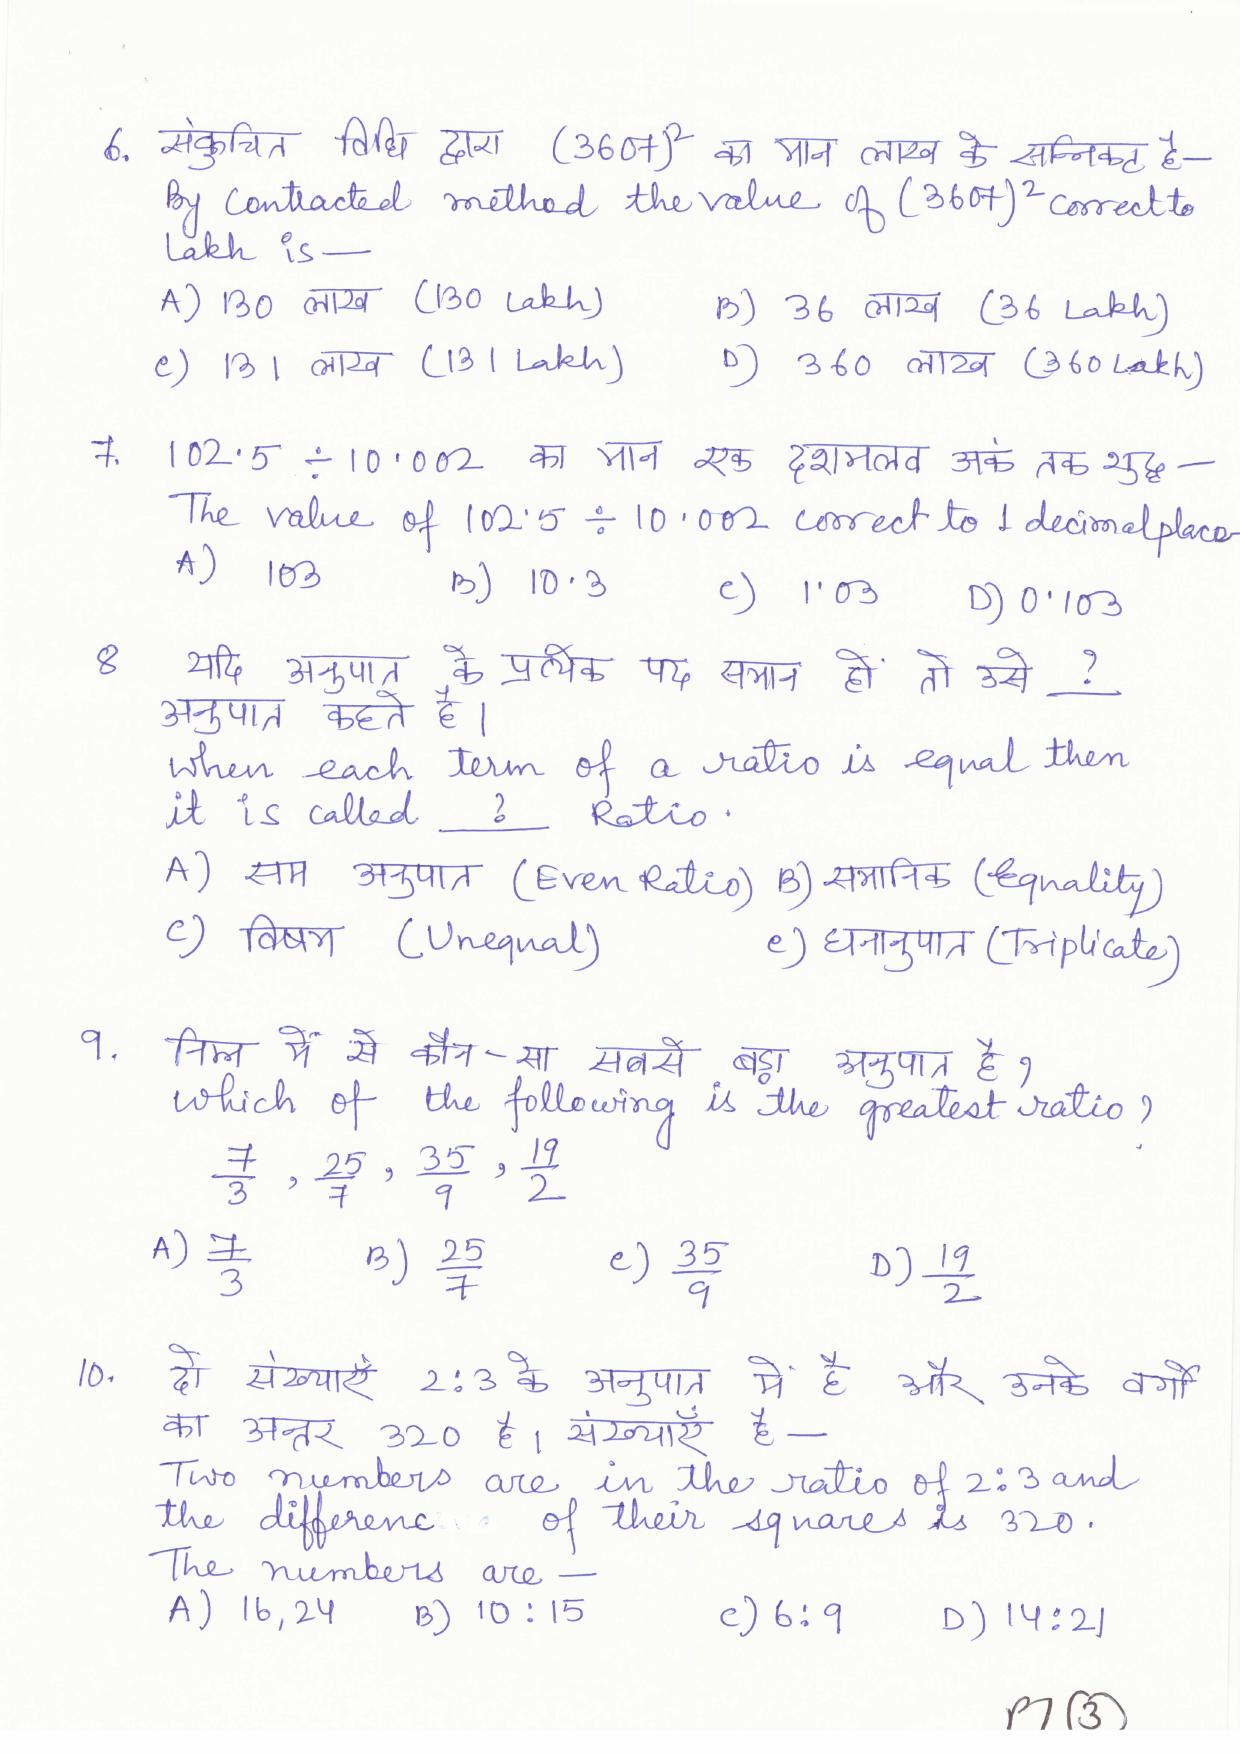 6. संकुचित विधि द्वारा (3607)² का मान लाख के सन्निकट है—
By Contracted method the value of (3607)² correct to
Lakh is—
A) 130 लाख (130 Lakh) B) 36 लाख (36 Lakh)
C) 131 लाख (131 Lakh) D) 360 लाख (360 Lakh)
7. 102.5 ÷ 10.002 का मान एक दशमलव अकं तक शुद्ध —
The value of 102.5 ÷ 10.002 correct to 1 decimal place
A) 103 B) 10.3 C) 1.03 D) 0.103
8 यदि अनुपात के प्रत्येक पद समान हों तो उसे ?
अनुपात कहते है।
when each term of a ratio is equal then
it is called ? Ratio.
A) सम अनुपात (Even Ratio) B) समानिक (Equality)
C) विषम (Unequal) e) घनानुपात (Triplicate)
9. निम्न में से कौन-सा सबसे बड़ा अनुपात है?
which of the following is the greatest ratio?
7/3, 25/7, 35/9, 19/2
A) 7/3 B) 25/7 C) 35/9 D) 19/2
10. दो संख्याएँ 2:3 के अनुपात में है और उनके वर्गों
का अन्तर 320 है। संख्याएँ है—
Two numbers are in the ratio of 2:3 and
the differenc of their squares is 320.
The numbers are —
A) 16,24 B) 10:15 C) 6:9 D) 14:21